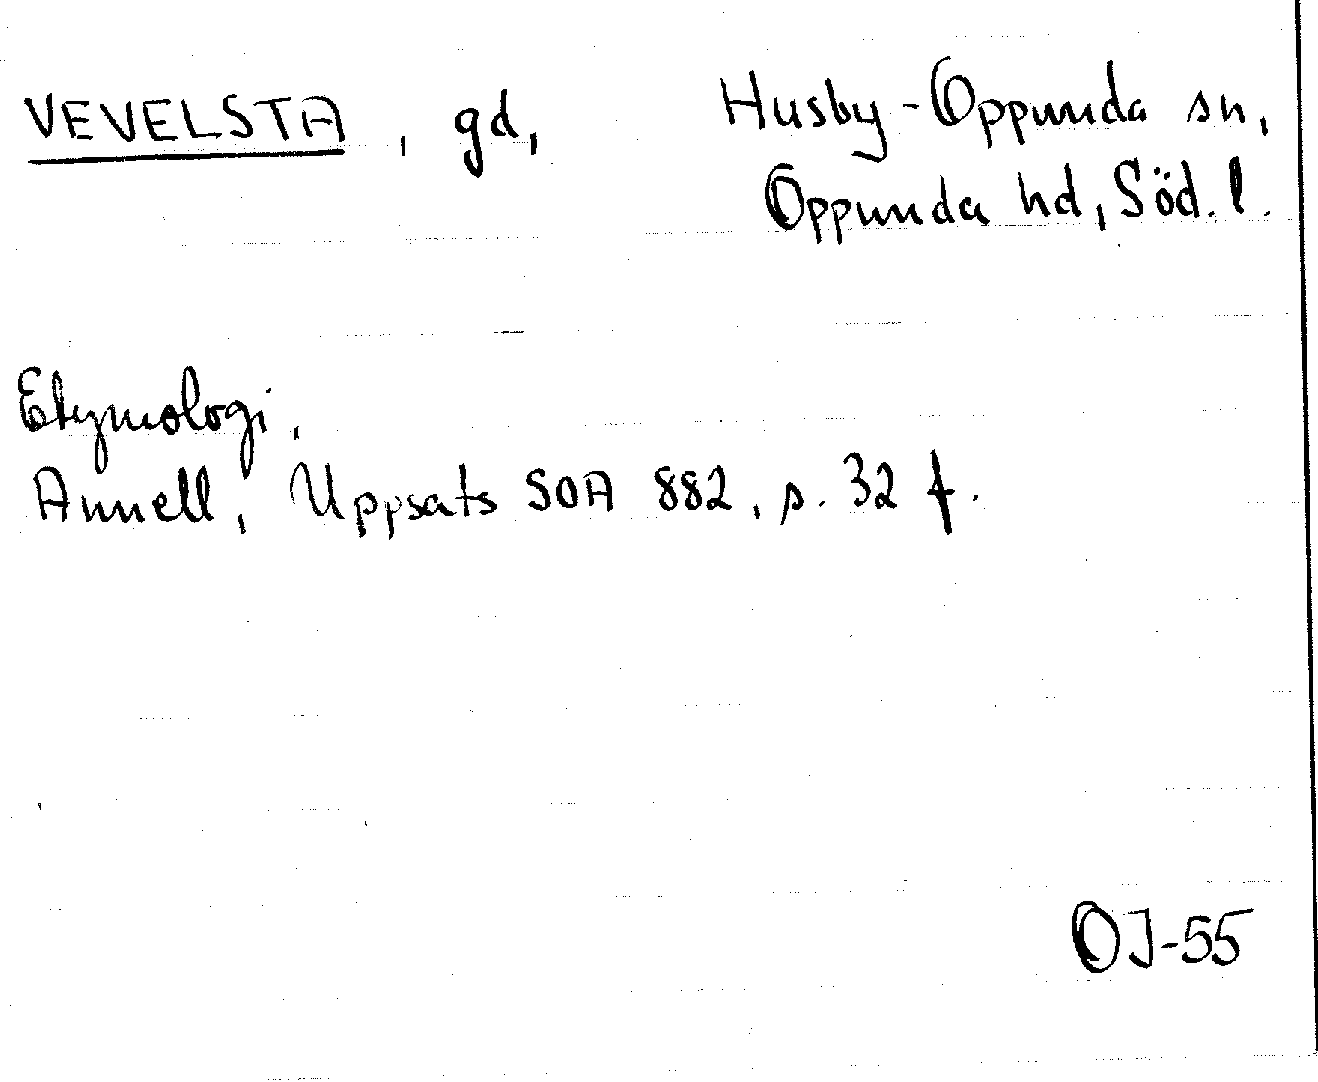 VEVELSTA, gd, Husby-Oppunda sn,
Oppunda hd, Söd. l.
Etymologi.
Annell, Uppsats SOA 882, s. 32 f.
OJ-55